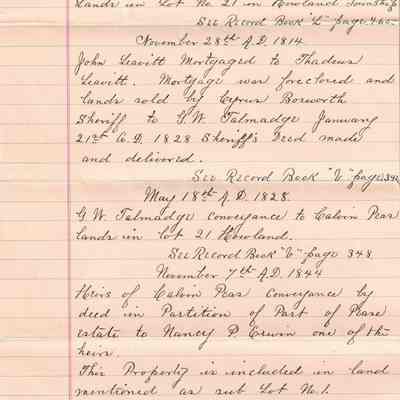 Lands in Lot No. 21 in Howland Township
See Record Book "L" page 460
November 28th A.D. 1814
John Leavitt Mortgaged to Thadeus
Leavitt. Mortgage was foreclored and
lands sold by Cyrus Bosworth
Sheriff to G.W. Talmadge January
21st A.D. 1828 Sheriff's Deed made
and delivered.
See Record Book "C" page 342
May 18th A.D. 1828.
G.W. Talmadge conveyance to Calvin Peas
lands in Lot 21 Howland.
See Record Book "C" page 348
November 7th A.D. 1844
Heirs of Calvin Peas Conveyance by
deed in Partition of Part of Pease
estate to Nancy P. Erwin one of the
heirs.
This Property is included in land
mentioned as sub Lot No. 1.